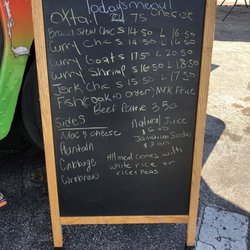 Today's menu!
Oxtail 21.75 one size
Brown Stew Chic S 14.50 L 16.50
Curry Chic S 14.50 L 16.50
Curry Goat S 17.50 L 18.50
Curry Shrimp S 16.50 L 18.50
Jerk Chic S 15.50 L 17.50
Fish (cook to order) MRK Price
Beef Pattie 3.50
Sides
Mac & cheese
Plantain
Cabbage
Natural Juice
$6.00
Jamaican Sodas
$3.00
All meal comes with
white rice or
rice & Peas